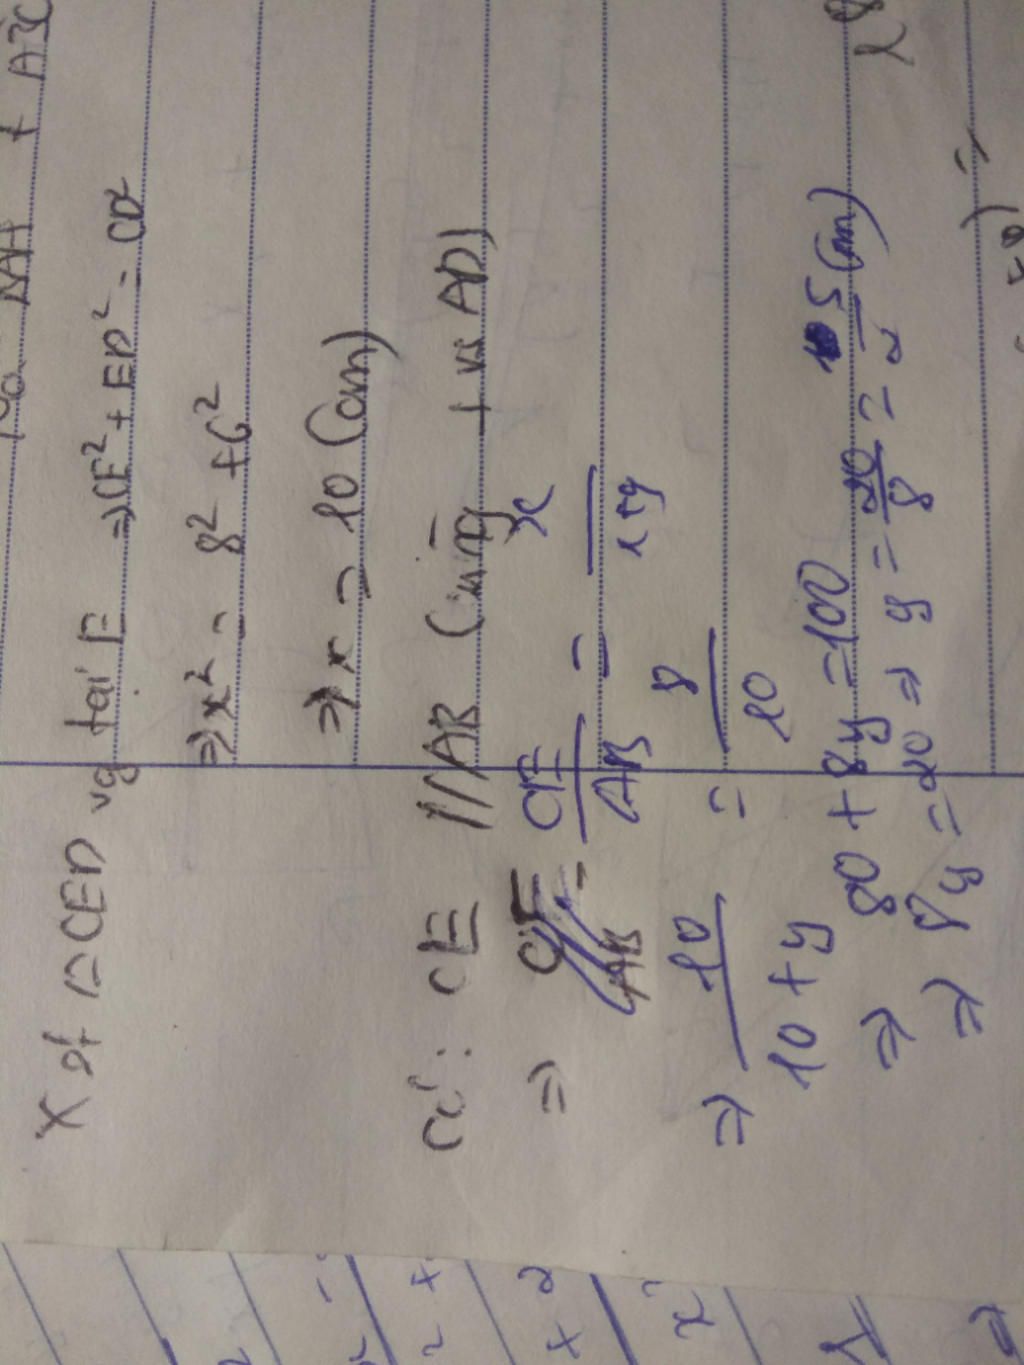 X ét △CED vg tại E ⇒ CE² + ED² = CD²
⇒ x² = 8² + 6²
⇒ x = 10 (cm)
Có: CE // AB (cùng ⊥ với AD)
⇒ CE/AB = x/x+y
⇒ 10/10+y = 8/10
⇒ 80 + 8y = 100
⇒ 8y = 20 ⇒ y = 20/8 = 5/2 (cm)